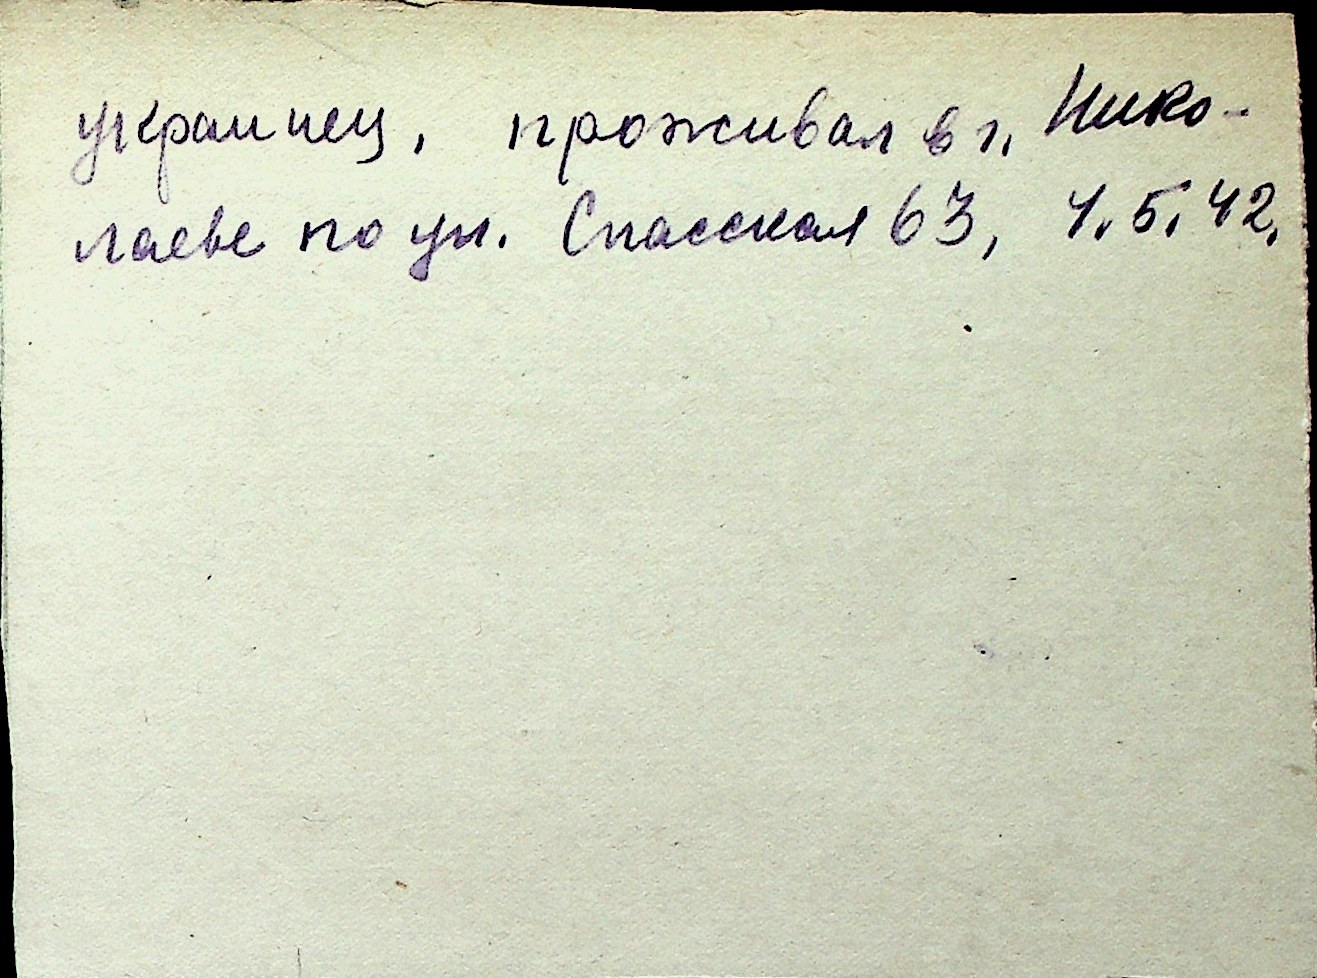 украинец, проживал в г. Нико-
лаеве по ул. Спасская 63, 4.5.42.